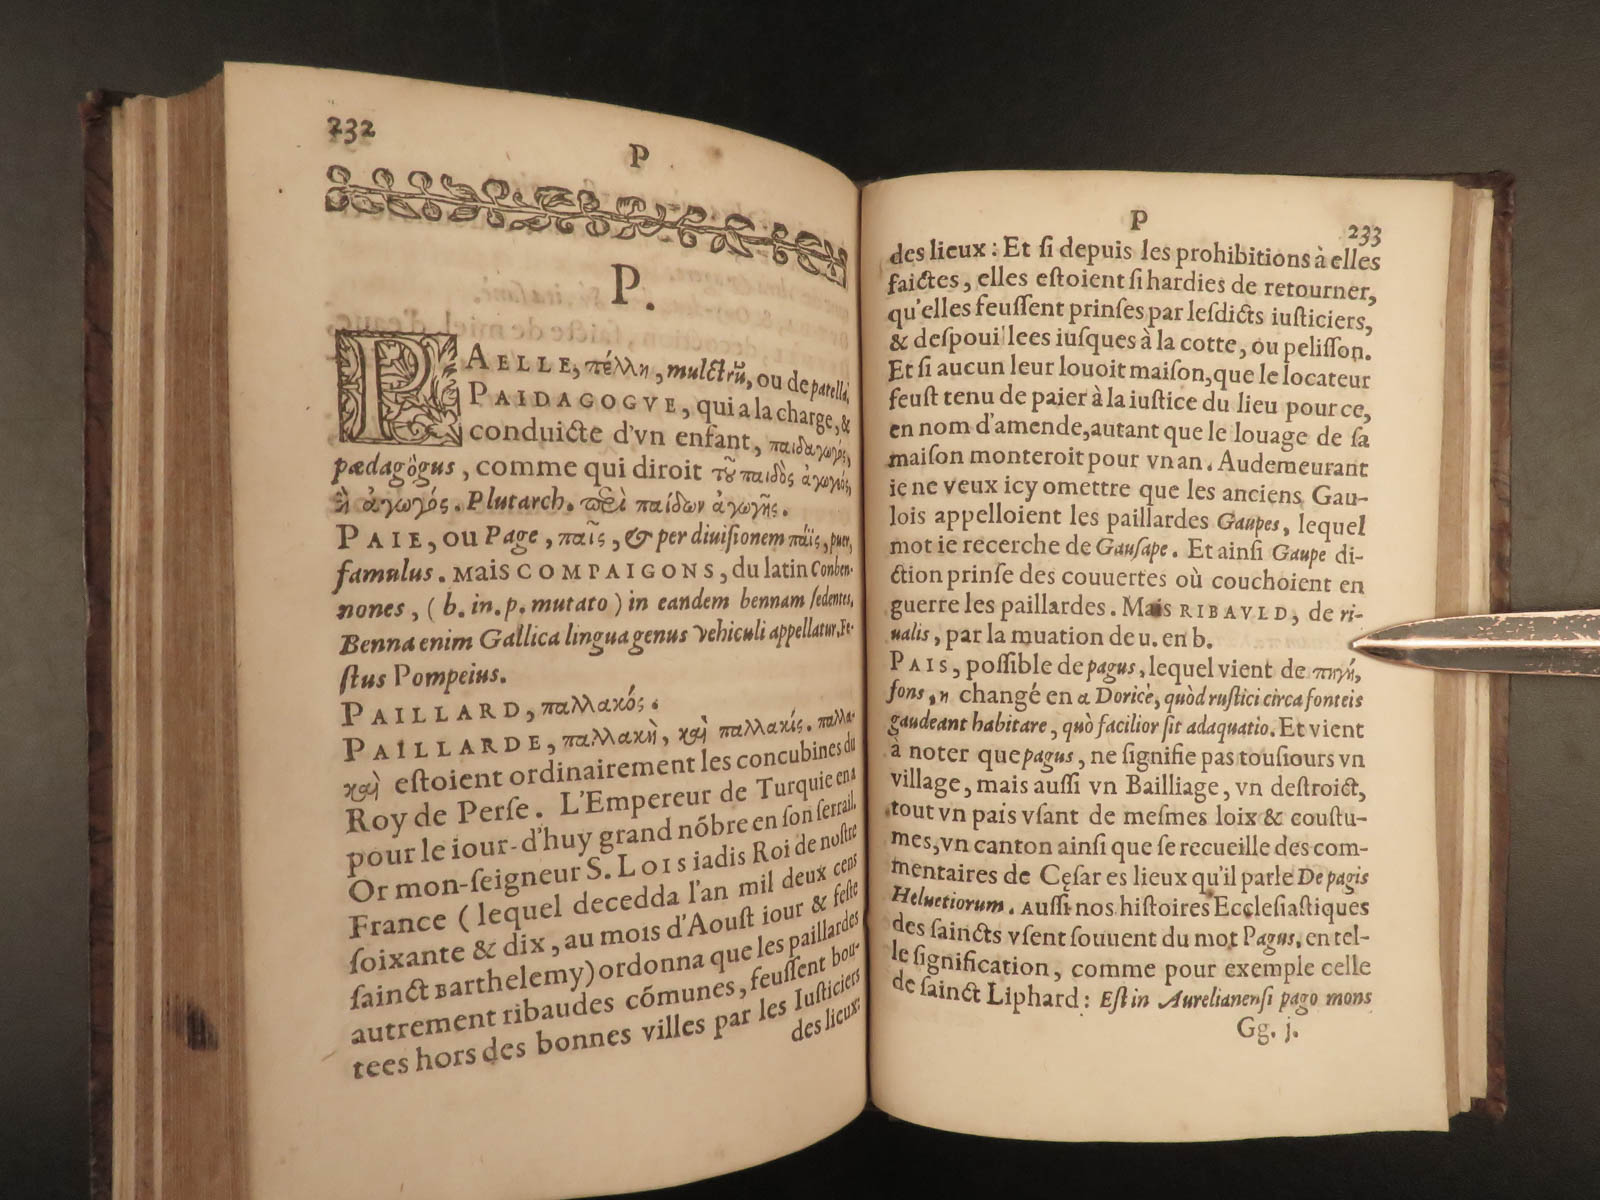 232
P
P.
PAELLE, πέλλη, mulctrũ, ou de patella,
PAIDAGOGVE, qui a la charge, &
conduicte d'vn enfant, παιδαγωγός,
pædagògus, comme qui diroit τοῦ παιδὸς ἀγωγός,
ἢ ἀγωγός. Plutarch. περὶ παίδων ἀγωγῆς.
PAIE, ou Page, παῖς, & per diuiſionem πάϊς, puer,
famulus. Mais COMPAIGONS, du latin Conben-
nones, (b. in. p. mutato) in eandem bennam ſedentes,
Benna enim Gallica lingua genus vehiculi appellatur. Fe-
ſtus Pompeius.
PAILLARD, παλλακός.
PAILLARDE, παλλακὴ, καὶ παλλακίς. παλλα-
καὶ eſtoient ordinairement les concubines du
Roy de Perſe. L'Empereur de Turquie en a
pour le iour-d'huy grand nõbre en ſon ſerrail.
Or mon-ſeigneur S. LOIS iadis Roi de noſtre
France (lequel decedda l'an mil deux cens
ſoixante & dix, au mois d'Aouſt iour & feſte
ſainct Barthelemy) ordonna que les paillardes
autrement ribaudes cómunes, feuſſent bou-
tees hors des bonnes villes par les Iuſticiers
des lieux:
P
233
des lieux: Et ſi depuis les prohibitions à elles
faictes, elles eſtoient ſi hardies de retourner,
qu'elles feuſſent prinſes par leſdicts iuſticiers,
& deſpouillees iuſques à la cotte, ou peliſſon.
Et ſi aucun leur louoit maiſon, que le locateur
feuſt tenu de paier à la iuſtice du lieu pour ce,
en nom d'amende, autant que le louage de ſa
maiſon monteroit pour vn an. Au demeurant
ie ne veux icy omettre que les anciens Gau-
lois appelloient les paillardes Gaupes, lequel
mot ie recerche de Gauſape. Et ainſi Gaupe di-
ction prinſe des couuertes où couchoient en
guerre les paillardes. Mais RIBAVLD, de ri-
ualis, par la muation de u. en b.
PAIS, poſſible de pagus, lequel vient de πηγή,
fons, η changé en α Doricè, quòd ruſtici circa fonteis
gaudeant habitare, quò facilior ſit adaquatio. Et vient
à noter que pagus, ne ſignifie pas touſiours vn
village, mais auſſi vn Bailliage, vn deſtroict,
tout vn pais vſant de meſmes loix & couſtu-
mes, vn canton ainſi que ſe recueille des com-
mentaires de Cęſar es lieux qu'il parle De pagis
Heluetiorum. Auſſi nos hiſtoires Eccleſiaſtiques
des ſaincts vſent ſouuent du mot Pagus, en tel-
le ſignification, comme pour exemple celle
de ſainct Liphard: Eſt in Aurelianenſi pago mons
Gg. j.